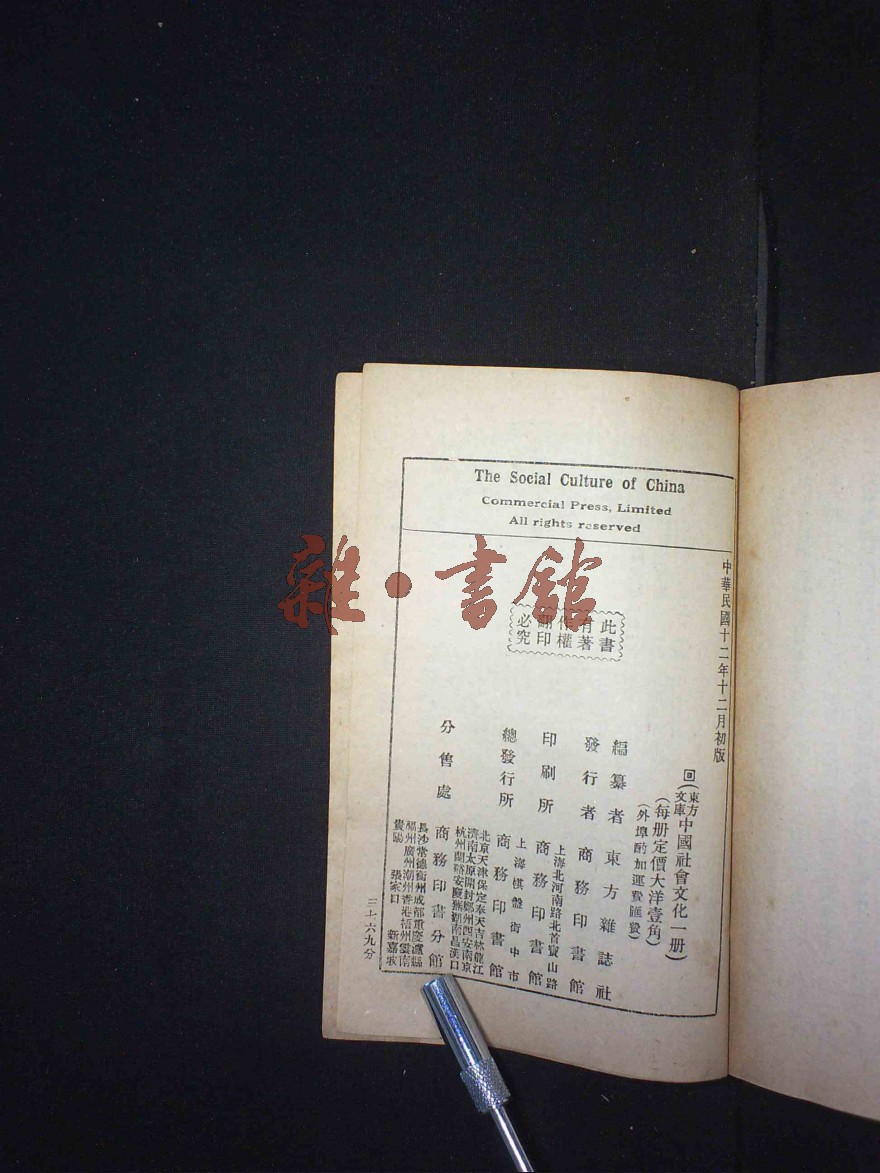 The Social Culture of China
Commercial Press, Limited
All rights reserved
中華民國十二年十二月初版
回(東方文庫中國社會文化一册)
(每册定價大洋壹角)
(外埠酌加運費匯費)
此書
有著
作權
翻印
必究
編纂者 東方雜誌社
發行者 商務印書館
上海北河南路北首寶山路
印刷所 商務印書館
上海棋盤街中市
總發行所 商務印書館
北京天津保定奉天吉林龍江
濟南太原開封鄭州西安南京
杭州蘭谿安慶蕪湖南昌漢口
分售處 商務印書分館
長沙常德衡州成都重慶瀘縣
福州廣州潮州香港梧州雲南
貴陽 張家口 新嘉坡
三七六九分
雜·書館